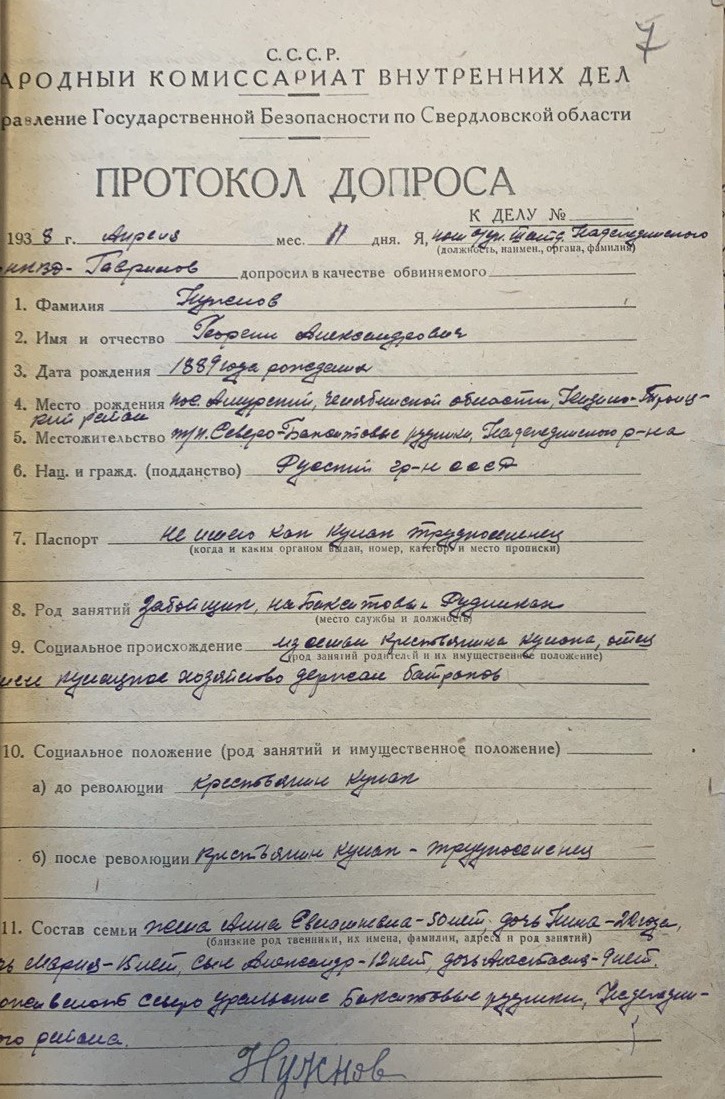 7
С.С.С.Р.
АРОДНЫЙ КОМИССАРИАТ ВНУТРЕННИХ ДЕЛ
равление Государственной Безопасности по Свердловской области
ПРОТОКОЛ ДОПРОСА
К ДЕЛУ №
1938 г. Апреля мес. 11 дня. Я, Надеждинского
(должность, наимен., органа, фамилия)
НКВД- Гаврилов допросил в качестве обвиняемого
1. Фамилия Нужнов
2. Имя и отчество Георгий Александрович
3. Дата рождения 1889 года рождения
4. Место рождения пос. Амурский, Челябинской области, Троиц-
кий район
5. Местожительство тр/п. Северо-Бокситовые рудники, Надеждинского р-на
6. Нац. и гражд. (подданство) Русский гр-н СССР
7. Паспорт не имею как кулак трудпоселенец
(когда и каким органом выдан, номер, категор. и место прописки)
8. Род занятий Забойщик, на Бокситовых Рудниках
(место службы и должность)
9. Социальное происхождение из семьи крестьянина кулака, отец
(род занятий родителей и их имущественное положение)
имел кулацкое хозяйство держал батраков
10. Социальное положение (род занятий и имущественное положение)
а) до революции крестьянин кулак
б) после революции крестьянин кулак - трудпоселенец
11. Состав семьи жена Анна - 50 лет, дочь Нина - 20 года,
(близкие род твенники, их имена, фамилии, адреса и род занятий)
чь Мария - 15 лет, сын Александр - 12 лет, дочь Анастасия - 9 лет.
Северо Уральские Бокситовые рудники, Надеждин-
ого района.
Нужнов